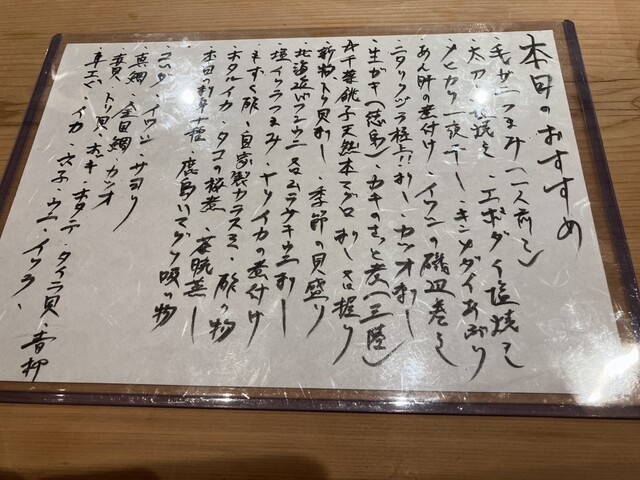 本日のおすすめ
・毛ガニつまみ(一人前〜)
・太刀塩焼き・エボダイ塩焼き
・メヒカリ一夜干し・キンメダイあぶり
・あん肝の煮付け・イワシの磯辺巻き
・ニタリクジラ極上!!刺し・カツオ刺し
・生ガキ(徳島)・カキのさっと煮(三陸)
・千葉銚子天然本マグロ刺し又は握り
・新物トリ貝刺し・季節の貝盛り
・北海道バフンウニ又はムラサキウニ刺し
・塩イクラつまみ・ヤリイカの煮付け
・もずく酢・自家製カラスミ・酢の物
・ホタルイカ・タコの桜煮・茶碗蒸し
・本日の刺身十種・鹿島ハマグリ吸い物
・コハダ・イワシ・サヨリ
・真鯛・金目鯛・カツオ
・青貝・トリ貝・ホッキ・ホタテ・タイラ貝・青柳
・車エビ・イカ・穴子・ウニ・イクラ・